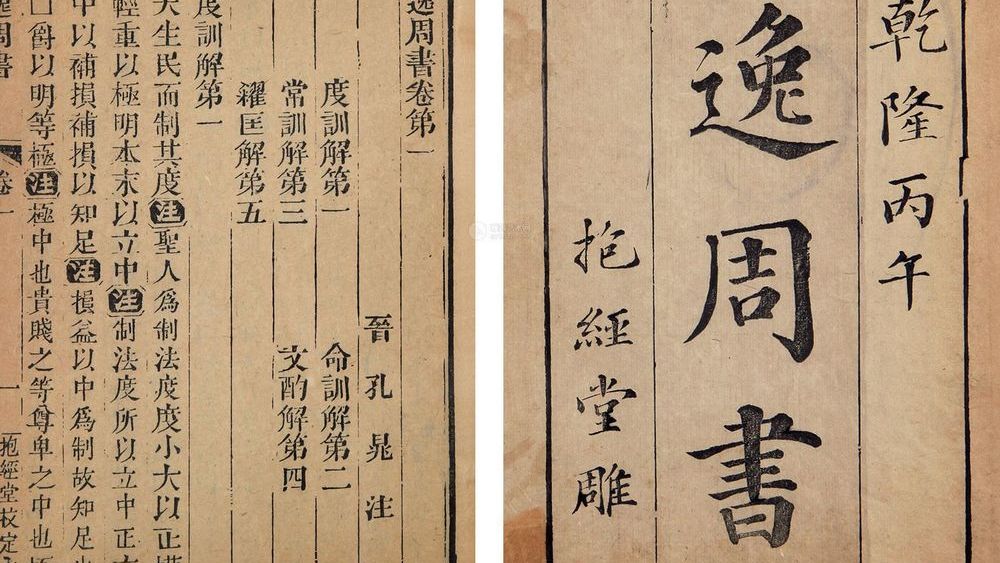 乾隆丙午
逸周書
抱經堂雕
逸周書卷第一
晉孔晁注
度訓解第一 命訓解第二
常訓解第三 文酌解第四
糴匡解第五
度訓解第一
天生民而制其度注聖人爲制法度度小大以正權
輕重以極明本末以立中注制法度所以立中正
中以補損補損以知足注損益以中爲制故知足
□爵以明等極注極中也貴賤之等尊卑之中也
周書 卷一 一 抱經堂校定